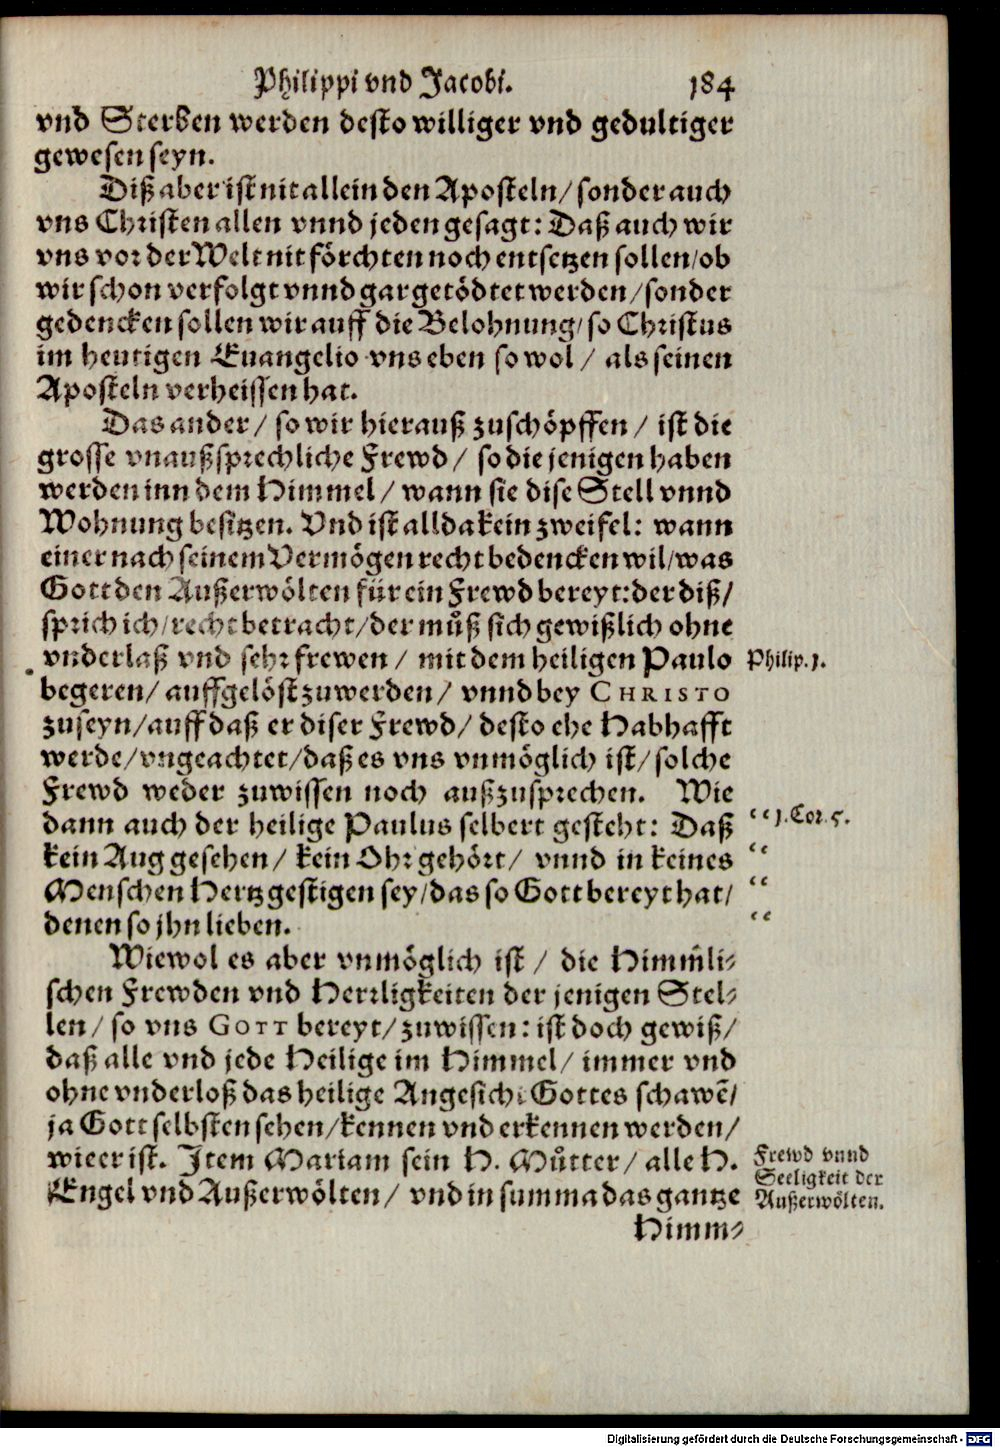 Philippi vnd Jacobi. 184
vnd Sterben werden desto williger vnd gedultiger
gewesen seyn.
Diß aber ist nit allein den Aposteln/ sonder auch
vns Christen allen vnnd jeden gesagt: Daß auch wir
vns vor der Welt nit förchten noch entsetzen sollen/ ob
wir schon verfolgt vnnd gar getödtet werden/ sonder
gedencken sollen wir auff die Belohnung/ so Christus
im heutigen Euangelio vns eben so wol / als seinen
Aposteln verheissen hat.
Das ander / so wir hierauß zuschöpffen / ist die
grosse vnaußsprechliche Frewd / so die jenigen haben
werden inn dem Himmel / wann sie dise Stell vnnd
Wohnung besitzen. Vnd ist allda kein zweifel: wann
einer nach seinem Vermögen recht bedencken wil/ was
Gott den Außerwölten für ein Frewd bereyt: der diß/
sprich ich/ recht betracht/ der můß sich gewißlich ohne
vnderlaß vnd sehr frewen / mit dem heiligen Paulo
Philip. 1.
begeren/ auffgelöst zuwerden/ vnnd bey CHRISTO
zuseyn/ auff daß er diser Frewd/ desto ehe Habhafft
werde/ vngeachtet/ daß es vns vnmöglich ist/ solche
Frewd weder zuwissen noch außzusprechen. Wie
dann auch der heilige Paulus selbert gesteht: Daß
“ 1. Cor. 5.
kein Aug gesehen/ kein Ohr gehört/ vnnd in keines
“
Menschen Hertz gestigen sey/ das so Gott bereyt hat/
“
denen so jhn lieben.
“
Wiewol es aber vnmöglich ist / die Him̃li⸗
schen Frewden vnd Herrligkeiten der jenigen Stel⸗
len/ so vns GOTT bereyt/ zuwissen: ist doch gewiß/
daß alle vnd jede Heilige im Himmel/ immer vnd
ohne vnderloß das heilige Angesicht Gottes schawẽ/
ja Gott selbsten sehen/ kennen vnd erkennen werden/
wie er ist. Item Mariam sein H. Můtter/ alle H.
Engel vnd Außerwölten/ vnd in summa das gantze
Frewd vnnd
Seeligkeit der
Außerwölten.
Himm⸗
Digitalisierung gefördert durch die Deutsche Forschungsgemeinschaft - DFG